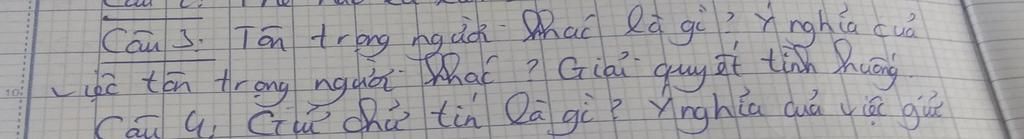 Câu 3: Tôn trọng người khác là gì? Ý nghĩa của
việc tôn trọng người khác? Giải quyết tình huống.
Câu 4, Giữ chữ tín là gì? Ý nghĩa của việc giữ